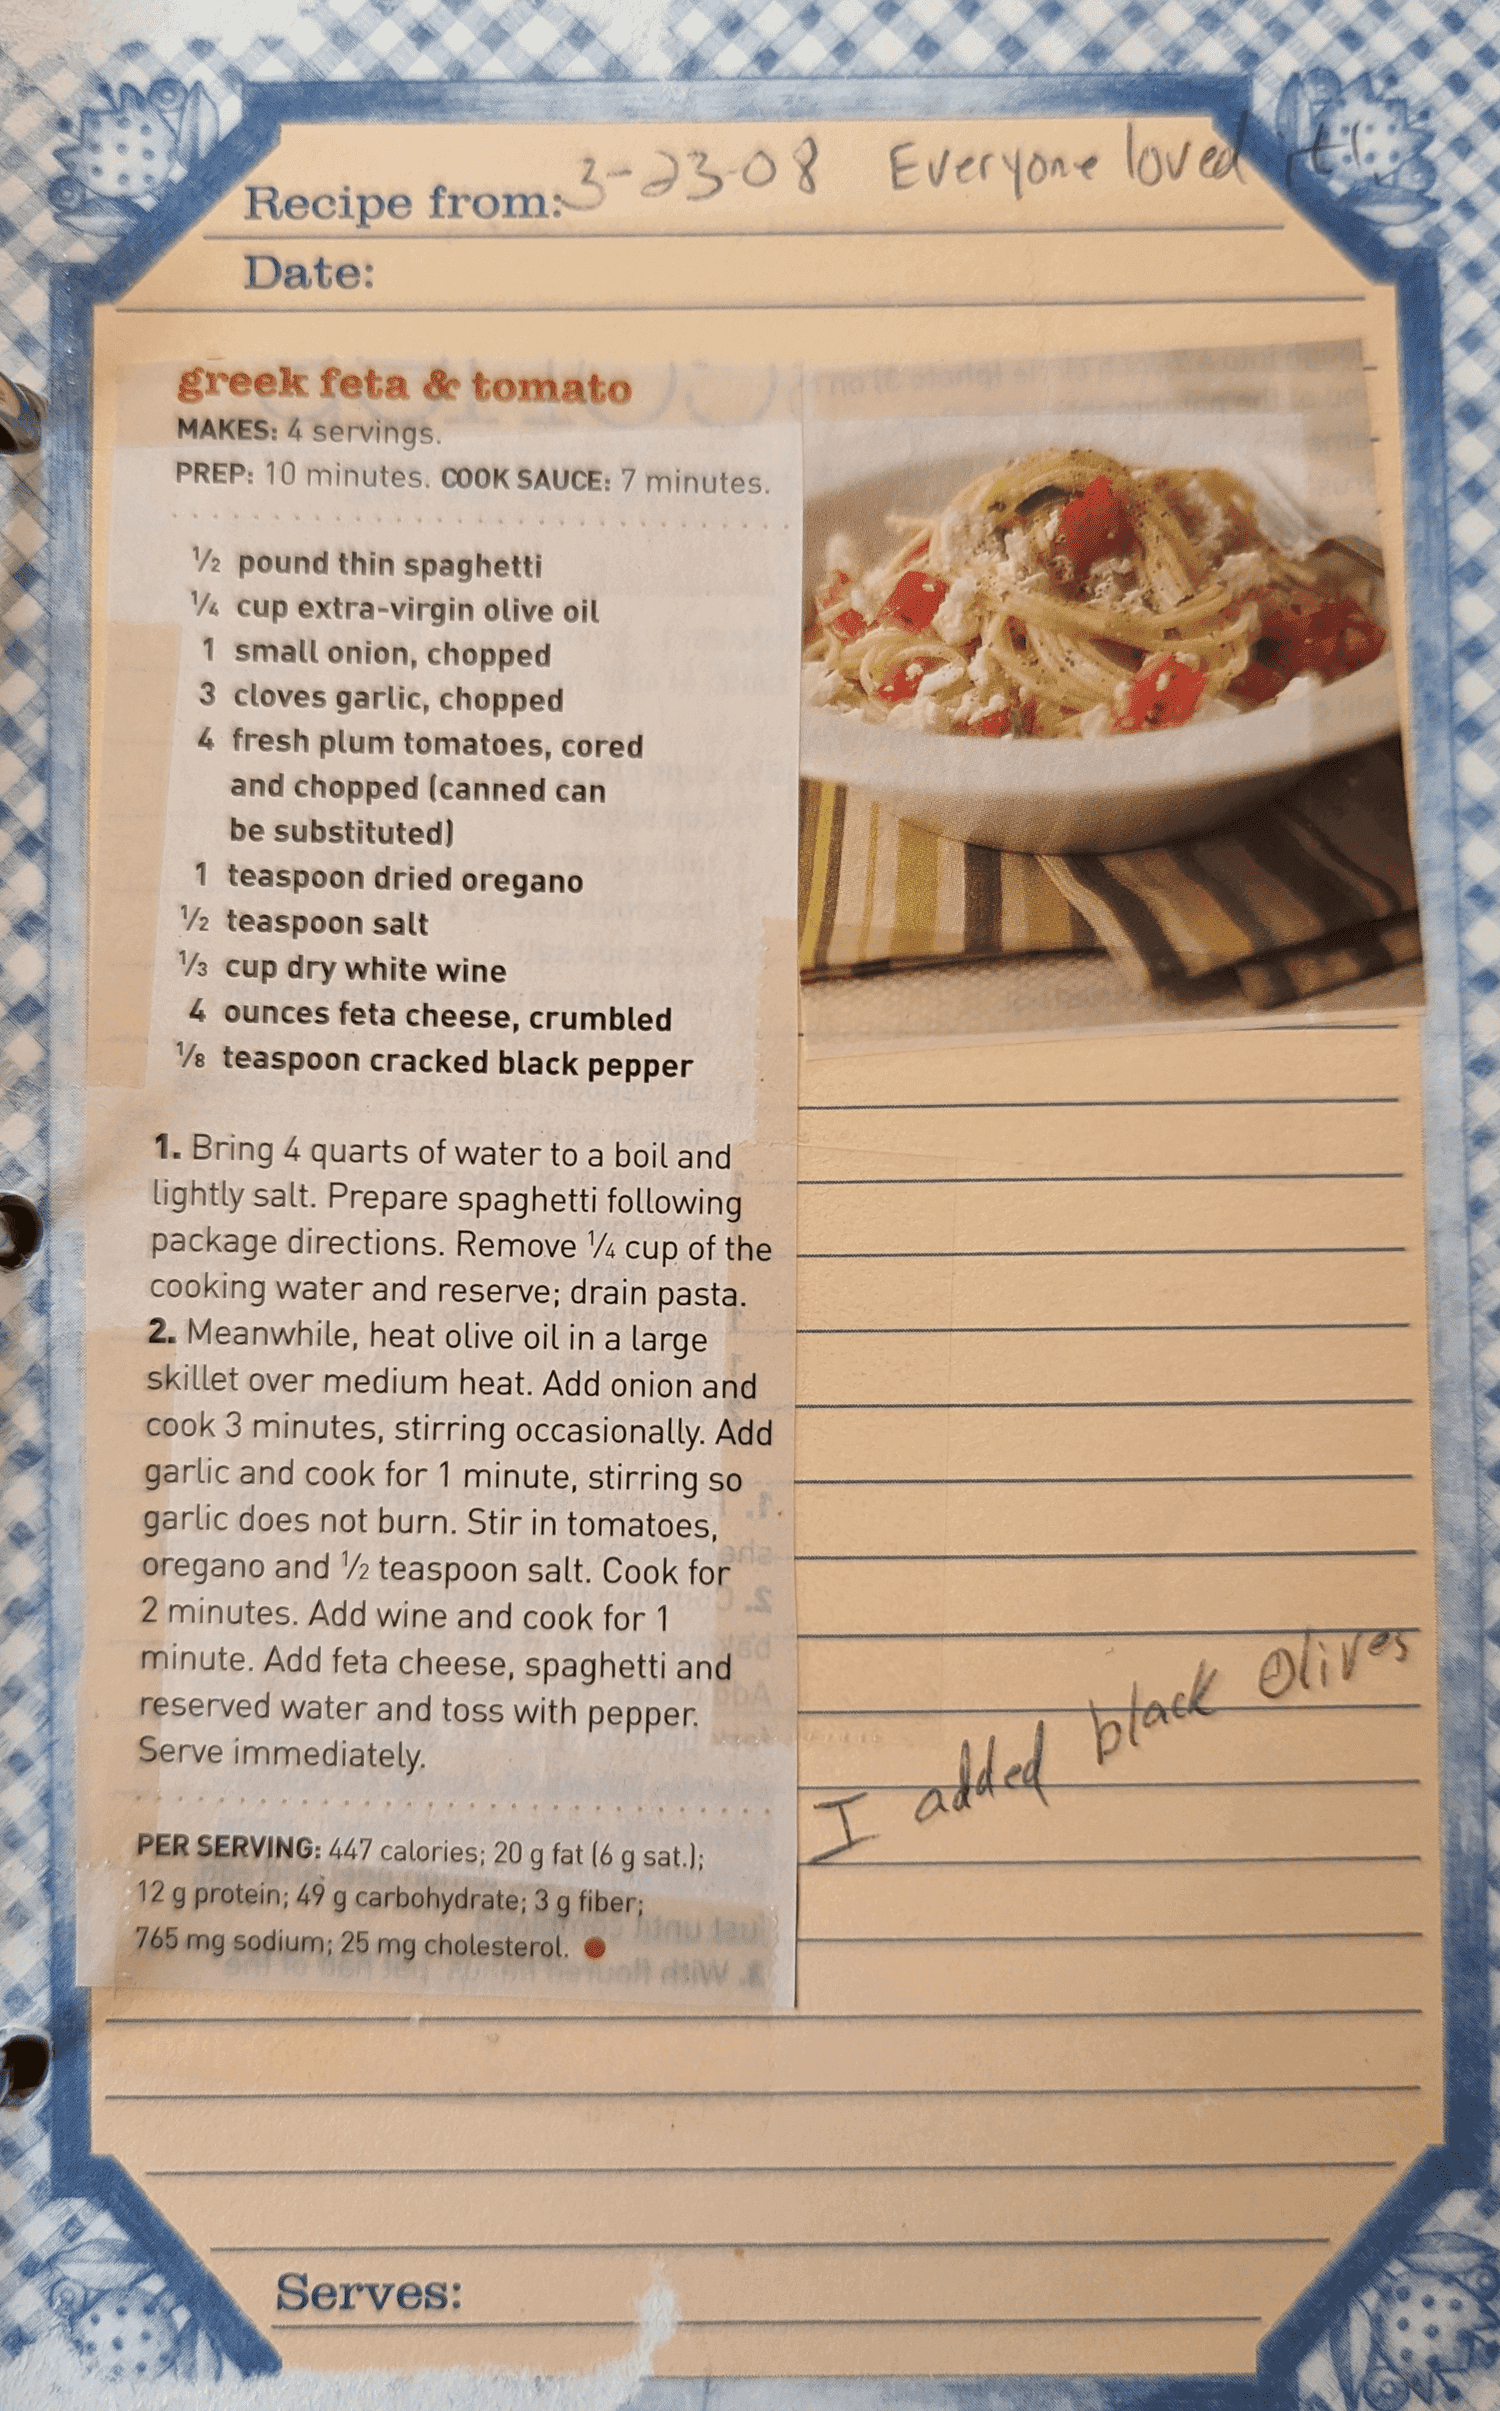 Recipe from: 3-23-08 Everyone loved it!
Date:
greek feta & tomato
MAKES: 4 servings.
PREP: 10 minutes. COOK SAUCE: 7 minutes.
½ pound thin spaghetti
¼ cup extra-virgin olive oil
1 small onion, chopped
3 cloves garlic, chopped
4 fresh plum tomatoes, cored
and chopped (canned can
be substituted)
1 teaspoon dried oregano
½ teaspoon salt
⅓ cup dry white wine
4 ounces feta cheese, crumbled
⅛ teaspoon cracked black pepper
1. Bring 4 quarts of water to a boil and
lightly salt. Prepare spaghetti following
package directions. Remove ¼ cup of the
cooking water and reserve; drain pasta.
2. Meanwhile, heat olive oil in a large
skillet over medium heat. Add onion and
cook 3 minutes, stirring occasionally. Add
garlic and cook for 1 minute, stirring so
garlic does not burn. Stir in tomatoes,
oregano and ½ teaspoon salt. Cook for
2 minutes. Add wine and cook for 1
minute. Add feta cheese, spaghetti and
reserved water and toss with pepper.
Serve immediately.
I added black olives
PER SERVING: 447 calories; 20 g fat (6 g sat.);
12 g protein; 49 g carbohydrate; 3 g fiber;
765 mg sodium; 25 mg cholesterol.
Serves: